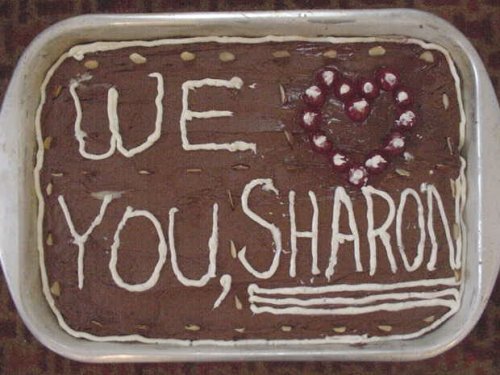 WE ♥
YOU, SHARON